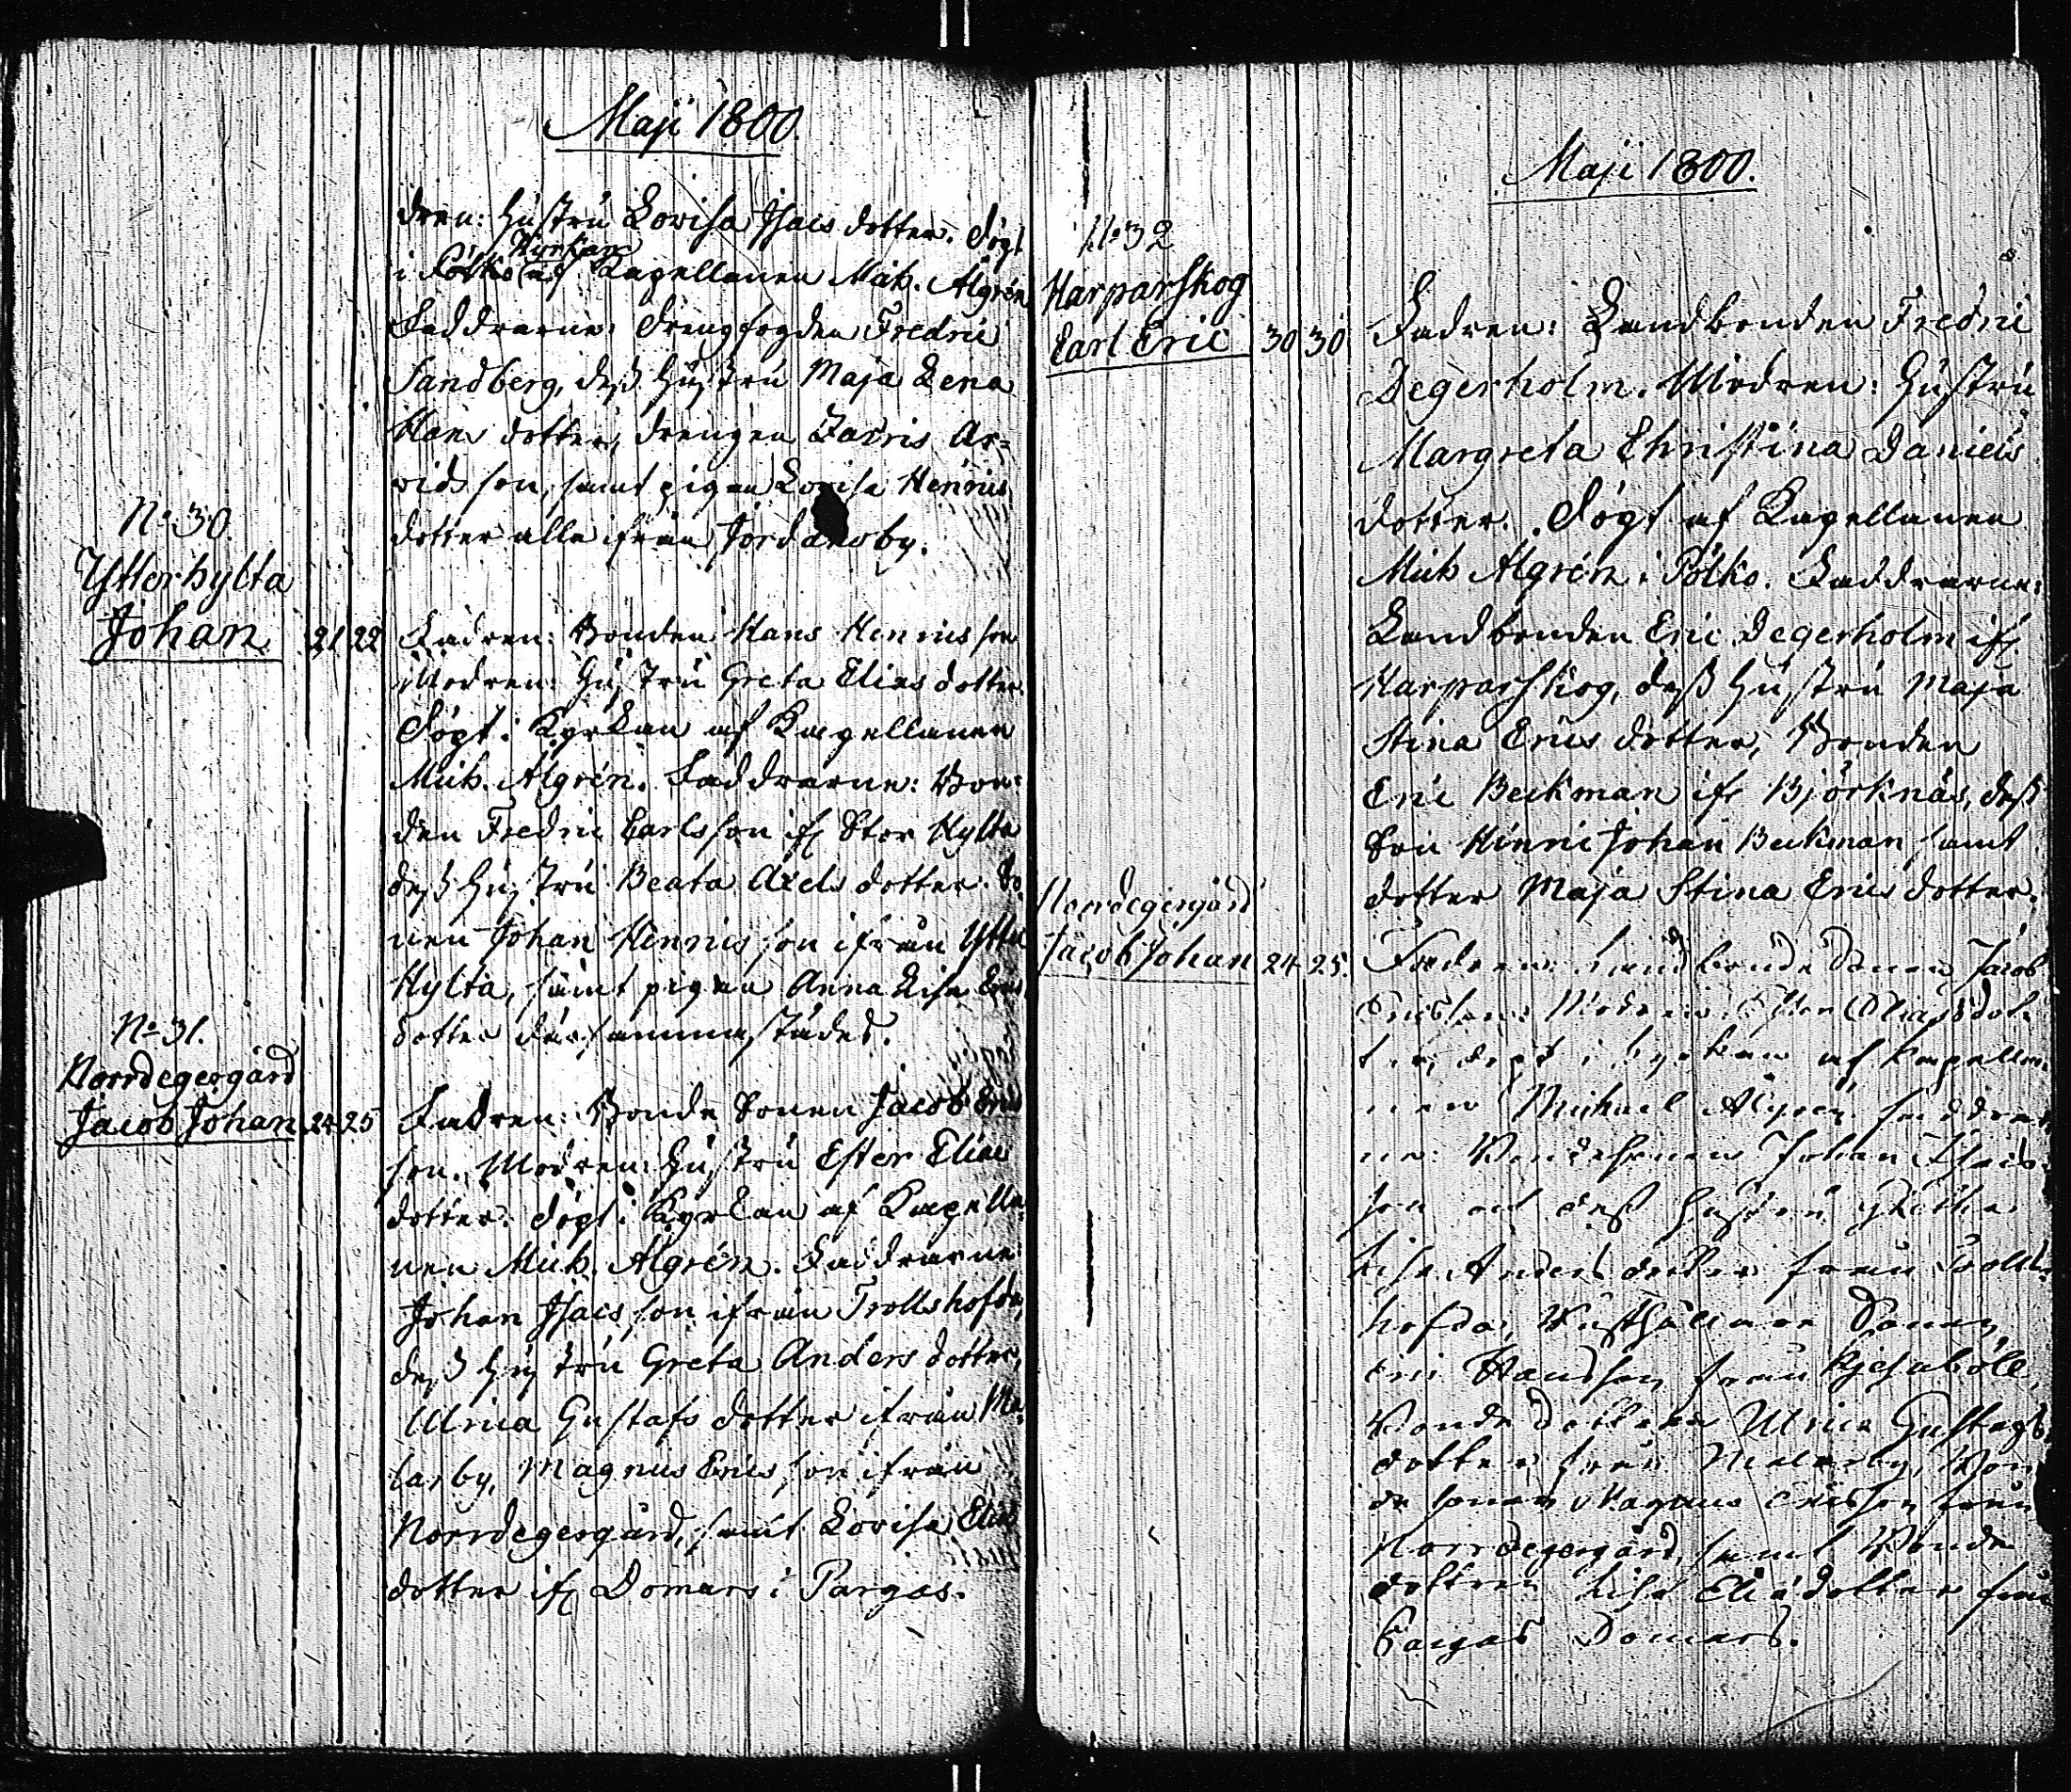 Maji 1800.
dren: Hustru Lovisa Isacs dotter. Döpt
Kyrkan
i Pölkö af Kapellanen Mich. Algrén
Faddrarne: Drengfogden Fredric
Sandberg, deß Hustru Maja Lena
Hans dotter, drengen Zacris Ar=
vids son, samt pigan Lovisa Henrics
dotter alle ifrån Jordansby.
No 30.
Ytterhylta
Johan 21 22
Fadren: Bonden Hans Henrics son
Modren: Hustru Greta Elias dotter.
Döpt i Kyrkan af Kapellanen
Mich. Algrén. Faddrarne: Bon=
den Fredric Carls son if Stor Hylta
deß Hustru Beata Axels dotter. So
nen Johan Henrics son ifrån Ytter
Hylta, samt pigan Anna Lisa Erics
dotter dersammastädes.
No 31.
Norrdegergård
Jacob Johan 24 25
Fadren: Bonde Sonen Jacob Erics
son. Modren: Hustru Ester Elias
dotter. Döpt i Kyrkan af Kapella
nen Mich. Algrén. Faddrarne:
Johan Isacs son ifrån Trollshofda,
deß Hustru Greta Anders dotter,
Ulrica Gustafs dotter ifrån Ma
larby, Magnus Erics son ifrån
Norrdegergård, samt Lovisa Elias
dotter if Domars i Pargas.
Maji 1800.
No 32
Harparskog
Carl Eric 30 30
Fadren: Landbonden Fredric
Degerholm. Modren: Hustru
Margreta Christina Daniels
dotter. Döpt af Kapellanen
Mich Algrén i Pölkö. Faddrarne:
Landbonden Eric Degerholm if
Harparskog, deß Hustru Maja
Stina Erics dotter, Bonden
Eric Beckman ifr Björknäs, deß
Son Henric Johan Beckman samt
dotter Maja Stina Erics dotter.
Norrdegergård
Jacob Johan 24 25.
Fadren: Landbonde Sonen Jacob
Ericsson. Modren: Ester Eliasdot=
ter, döpt i kyrkan af kapella
nen Michael Algren. faddrar
ne: Bondesonen Johan Isacs
son och deß Hustru
Lisa Anders dotter från Trolls
hofda, Rusthållare Sonen
Eric Hansson från Kjesaböle,
Bonde dottren Ulrica Gustafs
dotter från Malarby, Bon
de sonen Magnus Ericsson från
Norrdegergård, samt Bonde
dottren Lisa Eliedotter från
Pargas Domars.